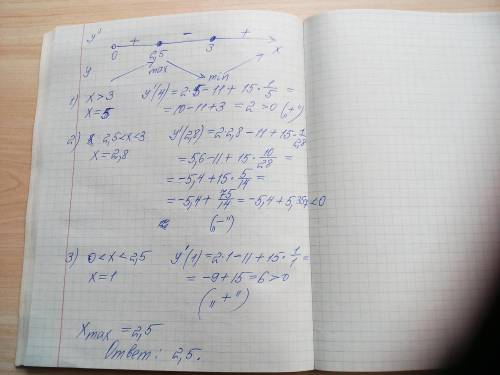 y' + - +
0 2,5 3 x
y max min
1) x > 3 y'(4) = 2·5 - 11 + 15·1/5 =
x = 5 = 10 - 11 + 3 = 2 > 0 („+")
2) 2,5 < x < 3 y'(2,8) = 2·2,8 - 11 + 15·1/2,8
x = 2,8 = 5,6 - 11 + 15·10/28 =
= -5,4 + 15·5/14 =
= -5,4 + 75/14 = -5,4 + 5,35 < 0
(„-")
3) 0 < x < 2,5 y'(1) = 2·1 - 11 + 15·1/1 =
x = 1 = -9 + 15 = 6 > 0
(„+")
xmax = 2,5
Ответ: 2,5.